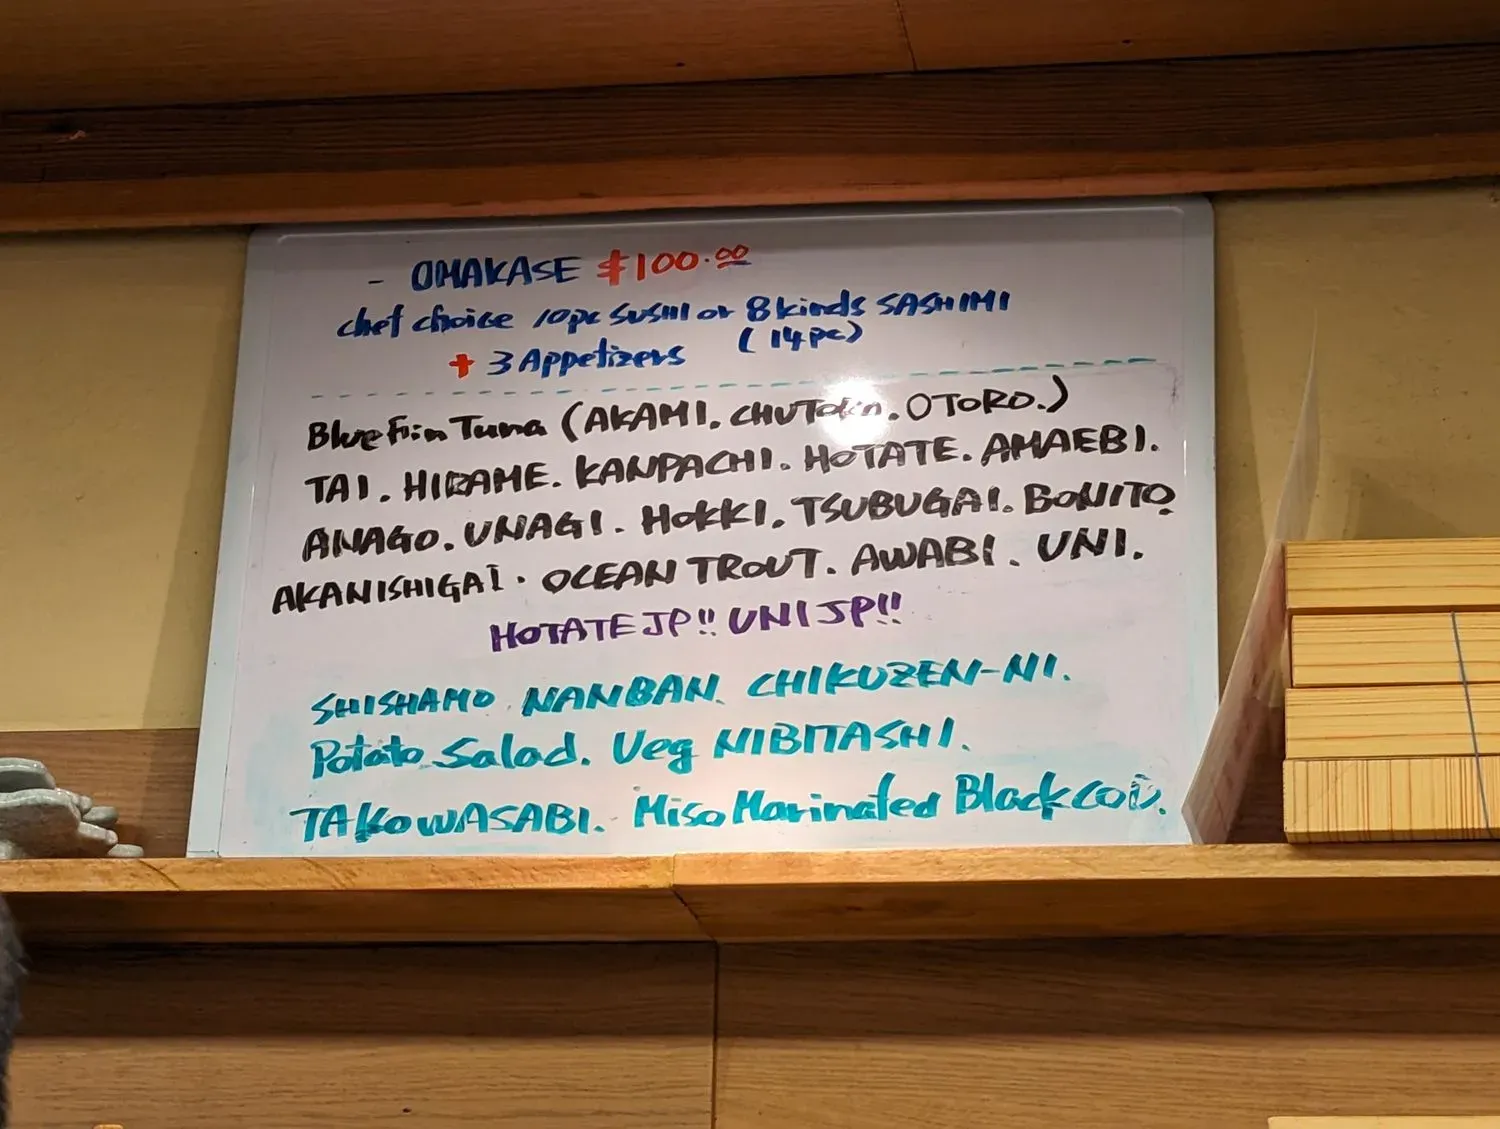 - OMAKASE $100.00
chef choice 10pc SUSHI or 8 kinds SASHIMI
(14pc)
+ 3 Appetizers
Blue Fin Tuna (AKAMI. CHUTORO. OTORO.)
TAI. HIRAME. KANPACHI. HOTATE. AMAEBI.
ANAGO. UNAGI. HOKKI. TSUBUGAI. BONITO.
AKANISHIGAI. OCEAN TROUT. AWABI. UNI.
HOTATE JP!! UNI JP!!
SHISHAMO NANBAN. CHIKUZEN-NI.
Potato Salad. Veg NIBITASHI.
TAKOWASABI. Miso Marinated Black cod.